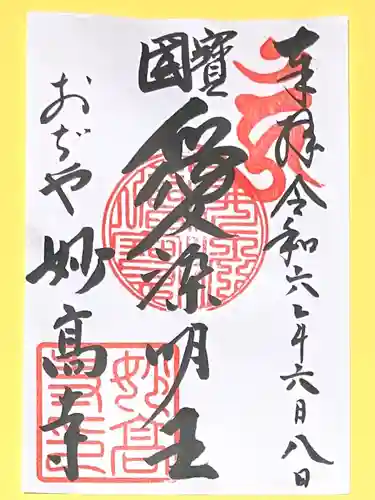 奉拝 令和六年六月八日
國寶
愛染明王
おぢや 妙高寺
妙高寺印